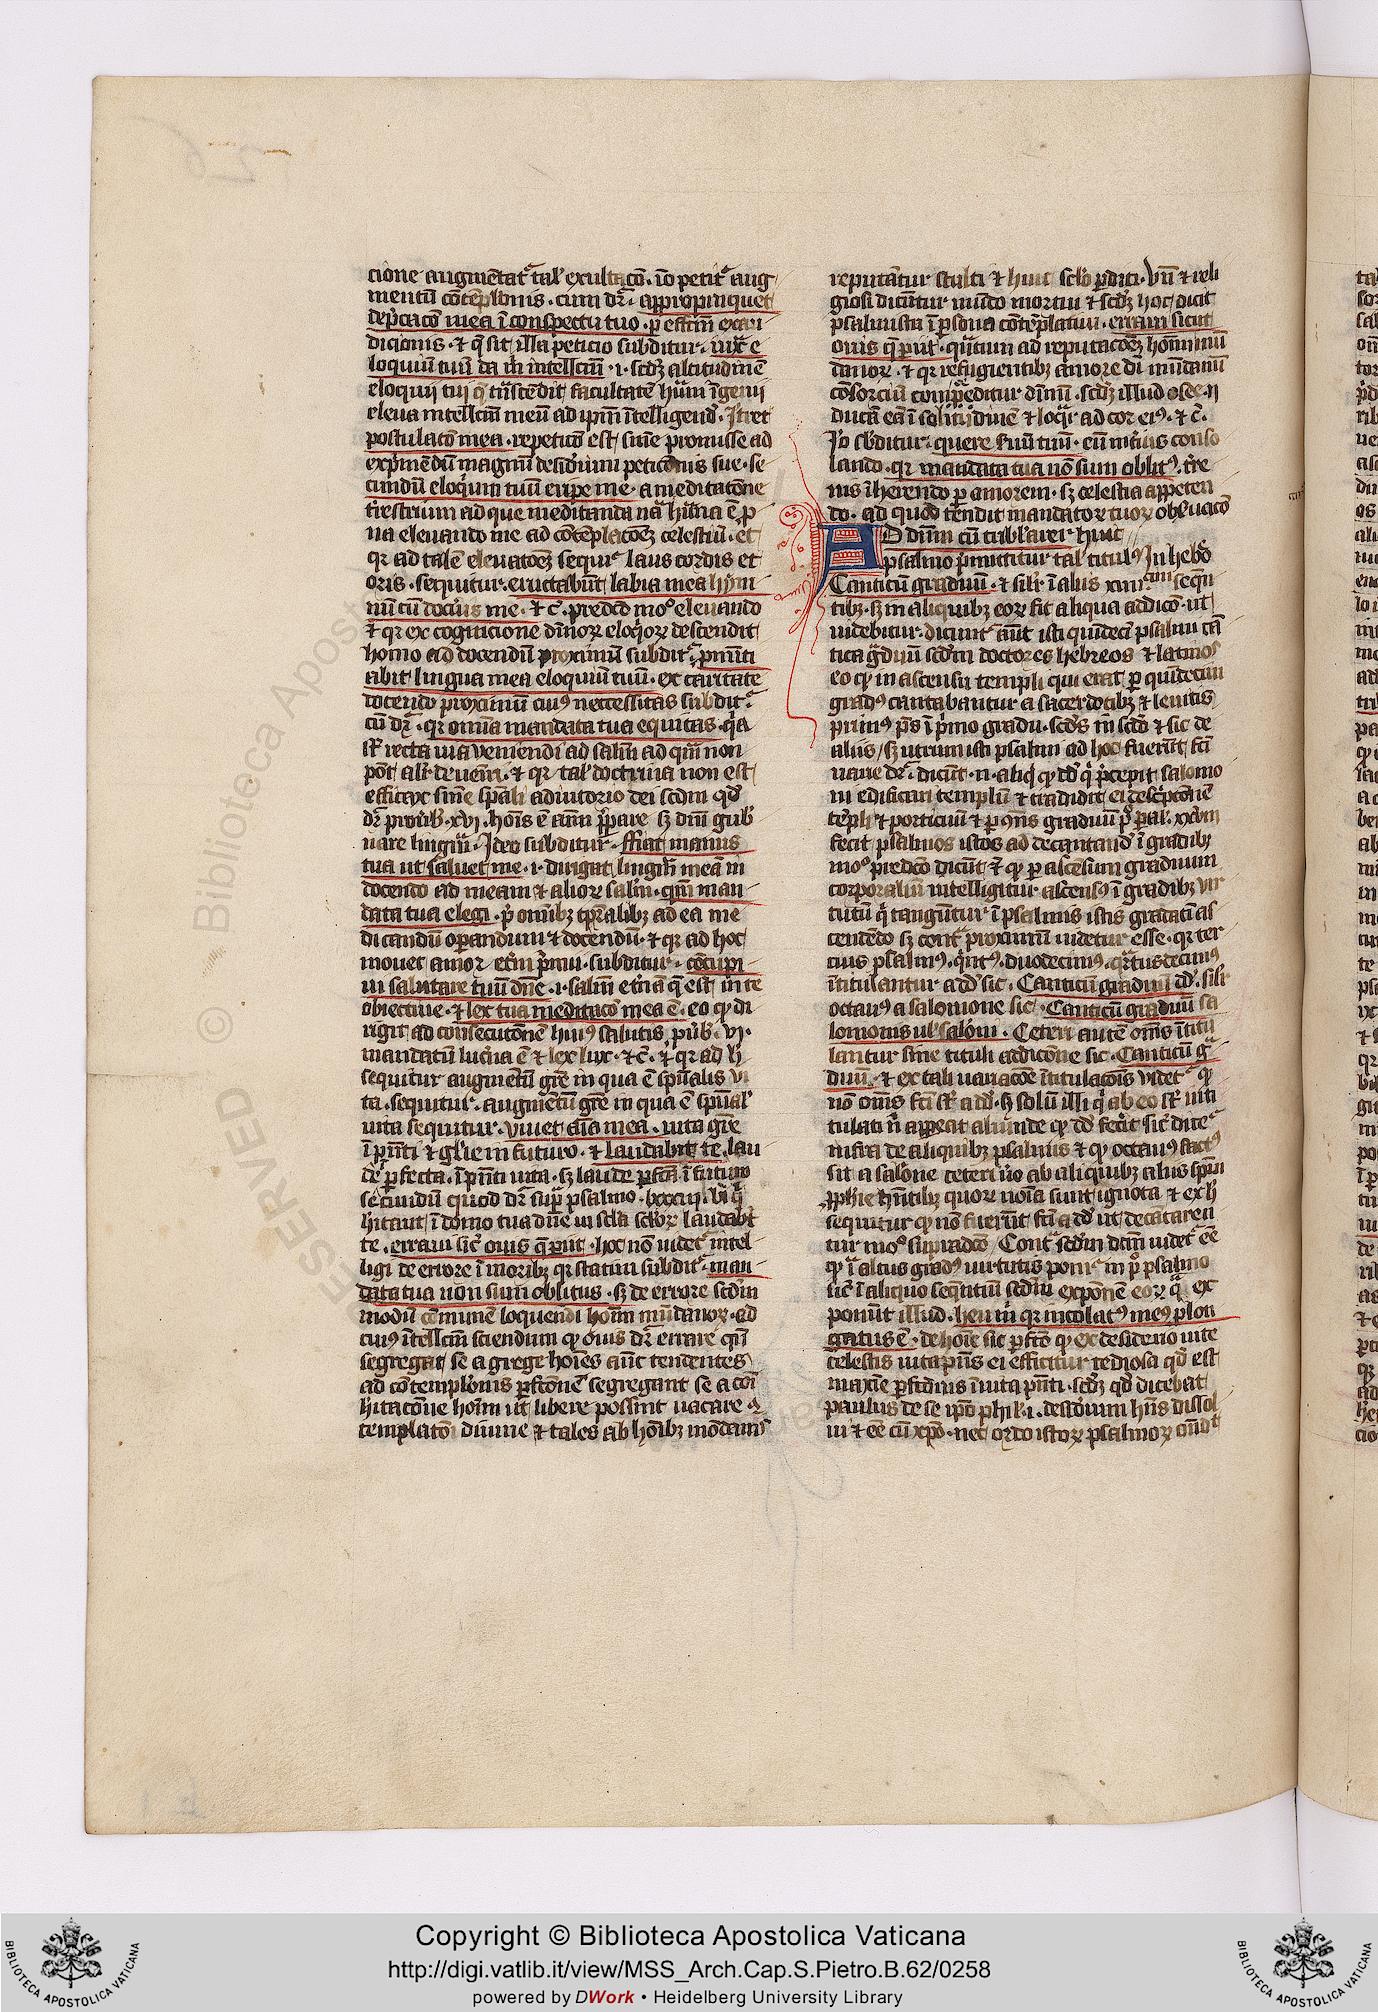 cione augmētat᷑ tal᷑ exultacō. iō petit᷑ aug
mentū cōtēplōnis. cum dr̄. appropinquet
dep̄cacō mea ī conspectu tuo. p̄ effc̄m exau
dicionis. et q̄ sit illa peticio subditur. iuxta e
loquiū tuū da m̄ intellc̄m .i. scd̄ꝫ altitudinē
eloquii tui q̄ trāscēdit facultatē hūm īgenii
eleua intellc̄m meū ad ip̄m ītelligend. Jtret
postulacō mea. repeticō est sūie promisse ad
exp̄mēdū magnū desid̄ium peticōnis sue. se
cundū eloquiū tuū eripe me. a meditatōne
t̄restrium ad que meditanda nā hūana ē p̄
na eleuando me ad cōtēplacōeꝫ celestiū. et
qꝛ ad talē eleuatōeꝫ sequit᷑ laus cordis et
oris. sequitur. eructabūt labia mea hȳm
nū cū docūis me. et c̄. predc̄o mº eleuando
et qꝛ ex cognicione diuinoꝝ eloq̄oꝝ descendit
homo ad docendū proximū subdit᷑. pnūti
abit lingua mea eloquiū tuū. ex caritate
docendo proximū cuius necessitas subdit᷑
cū dr̄. qꝛ omīa mandata tua equitas. q̄a
st̄ recta uia veniendi ad salūt̄ ad quā non
pōt alr̄ deuenīri. et qꝛ tal᷑ doctrina non est
efficax sine sp̄ali adiutorio dei scdm qd̄
dr̄ prouīb. xvi. hoīs ē aīm p̄pare sꝫ dnī gub̄
nare linguā. Jdeo subditur. ffiat manus
tua ut saluet me .i. dirigat linguā meā in
docendo ad meam et alioꝝ salūt̄. qm̄ man
data tua elegi. p̄ omībꝫ tp̄ralibꝫ ad ea me
dicandū operandum et docendū. et qꝛ ad hoc
mouet amor et̄ni p̄mii. subditur. cōcupi
ui salutare tuū dn̄e .i. salūt̄ et̄nā q̄ est in te
obiectiue. et lex tua meditacō mea ē. eo qꝫ di
rigit ad consecutōnē huiꝰ salutis, p̄uīb. vi.
mandatū lucīna ē et lex lux. et c̄. et qꝛ ad h̄
sequitur augmētū gr̄e in qua ē sp̄ualis vi
ta. sequitur. augmētū gr̄e in qua ē sp̄ual᷑
uita sequitur. viuet aīa mea. uita gr̄e
ī pn̄ti et gl̄ie in futuro. et laudabit te. lau
de īperfecta. ī pn̄ti uita. sꝫ laude p̄fc̄a ī futuro
secundū quod dr̄ supra psalmo. lxxxiii. Bn̄i q̄
hītant ī domo tua dn̄e in scl̄a scl̄oꝝ laudabt̄
te. erraui sic̄ ouis q̄ p̄iit. hoc nō uidet᷑ intel
ligi de errore ī moribꝫ qꝛ statim subdit᷑. man
data tua non sum oblitus. sꝫ de errore scdm
modum cōmunē loquendi hoīm mūdanoꝝ. ad
cuiꝰ ītellc̄m sciendum qꝫ ouis dr̄ errare qn̄
segregat se a grege hoīes aūt tendentes
ad contemplōnis p̄fctōnē segregant se a coī
hītacōne hoīm ut libere possint uacare 9
templatōi diuine et tales ab hoībꝫ mōdanis
reputātur stulti et huic sclō p̄diti. Vn̄ et reli
giosi dicuntur mūdo mortui et scd̄ꝫ hoc dicit
psalmista ī psona cōtēplatiui. erraui sicut
ouis q̄ p̄iit. quātum ad reputacōeꝫ hoīm mū
danoꝝ. et qꝛ refugientibꝫ amore dī mūdanū
cōsorciū compēditur diuinū. scd̄ꝫ illud osee .ii
ducā eā ī solitudinē et loqr̄ ad cor eiꝰ. et c̄.
Jō sb̄ditur. quere suū tuū. eū int̄ius conso
lando. qꝛ mandata tua nō sum oblitꝰ. t̄re
nis īherendo p̄ amorem. sꝫ celestia appeten
do. ad quod tendit mandatoꝝ tuoꝝ obseruacō
AD dnm̄ cū tribl̄arer huic
psalmo p̄mittitur tal᷑ titulꝰ Jn hebº
Canticū graduū. et sil᷑r ī aliis xiiii sequē
tibꝫ. sꝫ in aliquibꝫ eoꝝ fit aliqua addicō. ut
uidebitur. dicunt᷑ aūt isti quīdecī psalmi cā
tica graduū scdm doctores hebreos et latinos
eo qꝫ in ascensu templi qui erat p̄ quīdecim
gradꝰ cantabantur a sacerdotibꝫ et leuitis
primꝰ p̄s ī p̄mo gradu. scd̄s in scd̄o et sic de
aliis, sꝫ utrum isti psalmi ad hoc fuerūt fc̄i
uarie dr̄. dicūt .n. aliq̄ qꝫ dd̄ q̄ p̄cepit salomo
ni edificari templū et tradidit ei descp̄tōnē
tēpli et porticuū et p̄ 9n̄s graduū pº par. xxviii
fecit psalmos istos ad decantand ī gradibꝫ
moº predc̄o dicūt et̄ qꝫ p̄ ascensum graduum
corporaliū intelligitur ascensꝰ ī gradibꝫ vir
tutū q̄ tanguntur ī psalmis istis gradatī as
cendēdo sꝫ cont᷑ proximū uidetur esse. qꝛ ter
cius psalmꝰ. qūitꝰ. duodecimꝰ. qr̄tusdecimꝰ
ītitulantur a dd̄ sic. Canticū graduū dd̄. sil᷑r
octauꝰ a salomone sic. Canticū graduū sa
lomonis ul᷑ salōni. Ceteri autē oms̄ ītitu
lantur sine tituli addicōne sic. Canticū gra
duū. et ex tali uariacōe ītitulacōis videt᷑ qꝫ
nō oms̄ fc̄i st̄ a dd̄. sꝫ solū illi q̄ ab eo st̄ inti
tulati n̄ appeat aliunde qꝫ dd̄ fecit sic̄ dicet᷑
infra de aliquibꝫ psalmis et qꝫ octauꝰ factꝰ
sit a salōne ceteri u̇o ab aliquibꝫ aliis sp̄m
ꝓphīe hn̄tibꝫ quoꝝ noīa sunt ignota et ex h̄
sequitur qꝫ nō fuerūt fc̄i a dd̄ ut decātaren
tur moº supradc̄o, Cont᷑ scdm dc̄m uidet᷑ eē
qꝫ ī altus gradꝰ uirtutis ponit᷑ in pº psalmo
sic̄ ī aliquo seqn̄tiū scdm exponē eoꝝ q̄ ex
ponūt illud. heu m̄ qꝛ incolatꝰ meꝰ ꝓlon
gatus ē. de hoīe sic p̄fc̄o qꝫ ex desiderio uite
celestis uita pn̄s ei efficitur tediosa qd̄ est
maxīe p̄fctōnis ī uita pn̄ti. scd̄ꝫ qd̄ dicebat
paulus de se ip̄o phil᷑. i. desid̄ium hn̄s dissol
ui et eē cū xp̄o. nec ordo istoꝝ psalmoꝝ
Copyright © Biblioteca Apostolica Vaticana
http://digi.vatlib.it/view/MSS_Arch.Cap.S.Pietro.B.62/0258
powered by DWork • Heidelberg University Library